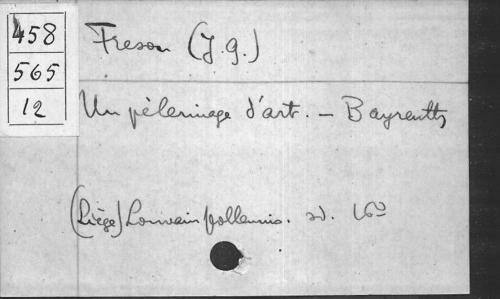 458
565
12
Freson (J.G.)
Un pèlerinage d'art. – Bayreuth
(Liège) Louvain polleunis. sd. 16°